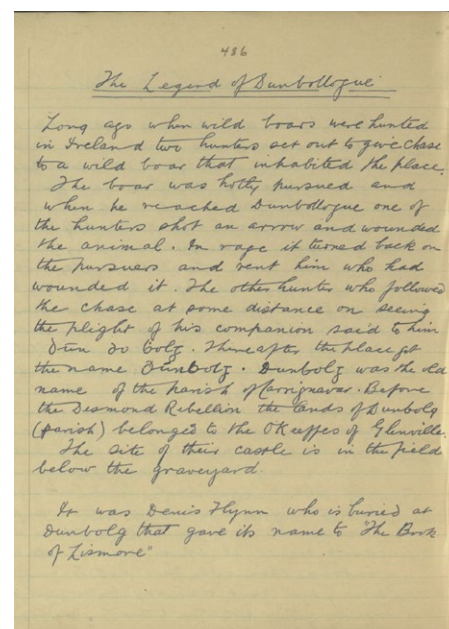 486
The Legend of Dunbollogue
Long ago when wild boars were hunted
in Ireland two hunters set out to give chase
to a wild boar that inhabited the place.
The boar was hotly pursued and
when he reached Dunbollogue one of
the hunters shot an arrow and wounded
the animal. In rage it turned back on
the pursuers and rent him who had
wounded it. The other hunter who followed
the chase at some distance on seeing
the plight of his companion said to him
Dún do bolg. Thereafter the place got
the name Dunbolg. Dunbolg was the old
name of the parish of Carrignavar. Before
the Desmond Rebellion the lands of Dunbolg
(parish) belonged to the O'Keeffes of Glenville.
The site of their castle is in the field
below the graveyard.
It was Denis Flynn who is buried at
Dunbolg that gave its name to "The Book
of Lismore"